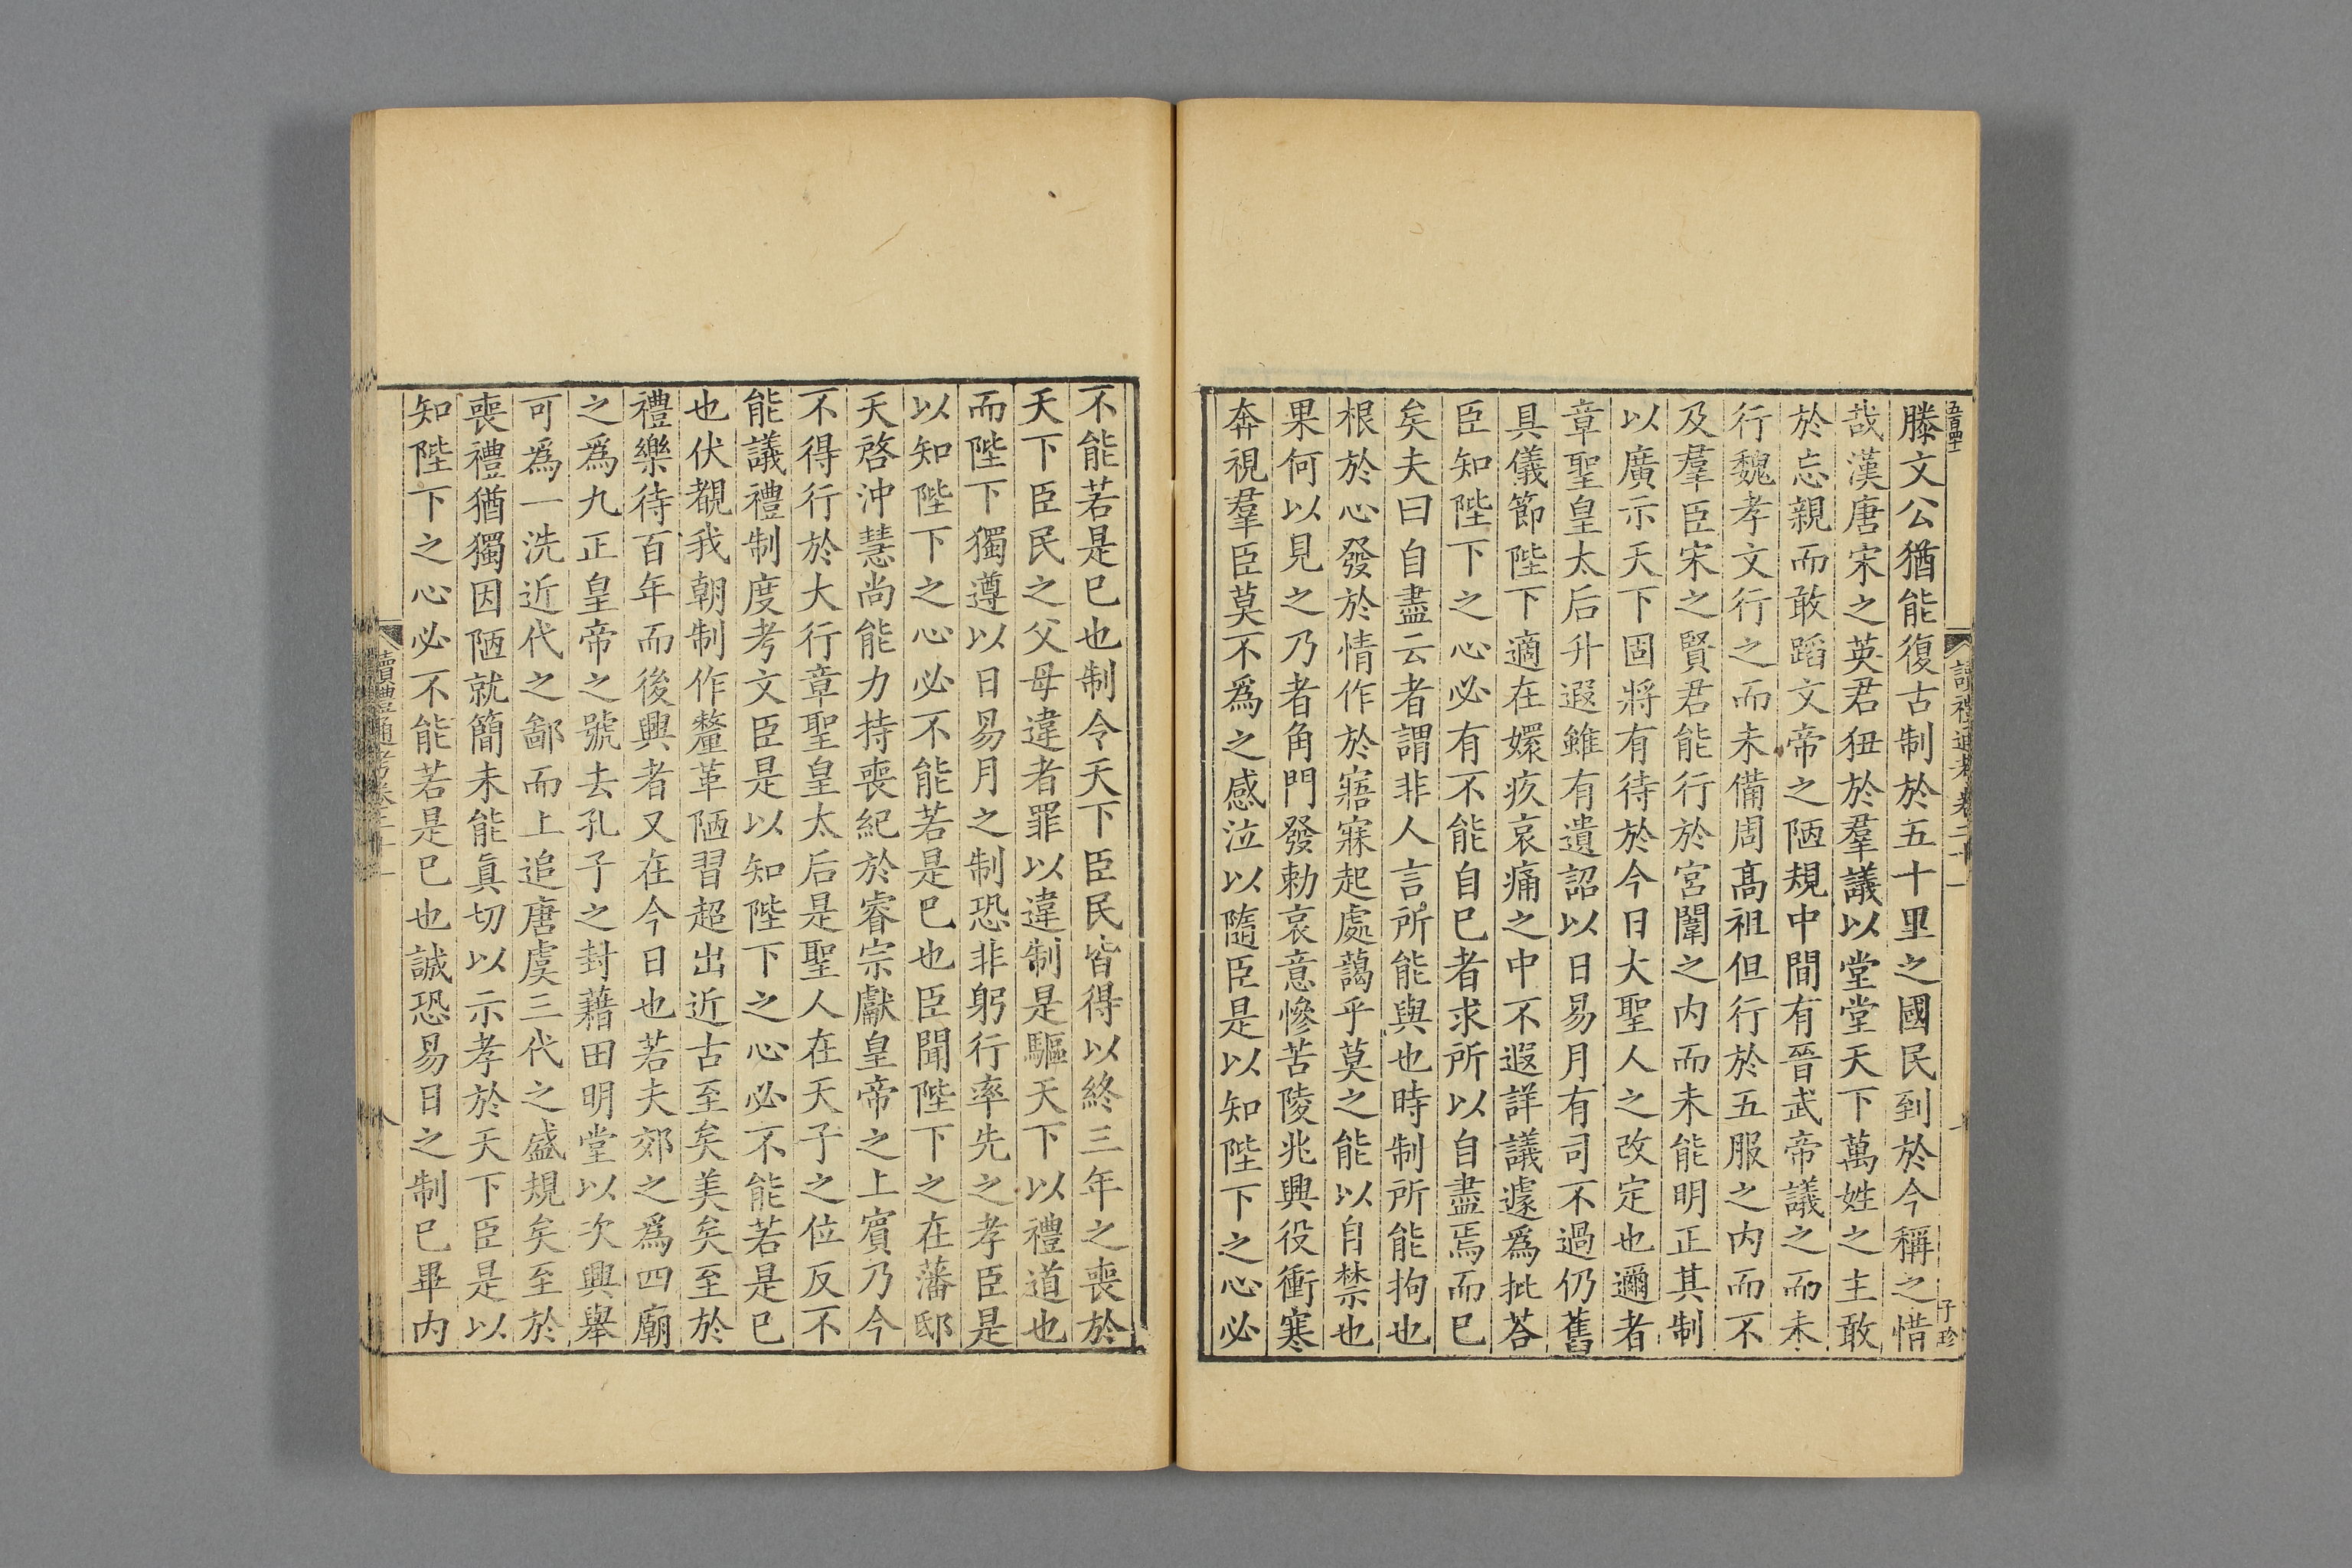 滕文公猶能復古制於五十里之國民到於今稱之惜
哉漢唐宋之英君狃於羣議以堂堂天下萬姓之主敢
於忘親而敢蹈文帝之陋規中間有晉武帝議之而未
行魏孝文行之而未備周高祖但行於五服之内而不
及羣臣宋之賢君能行於宮闈之内而未能明正其制
以廣示天下固將有待於今日大聖人之改定也邇者
章聖皇太后升遐雖有遺詔以日易月有司不過仍舊
具儀節陛下適在嬛疚哀痛之中不遐詳議遽爲批荅
臣知陛下之心必有不能自已者求所以自盡焉而已
矣夫曰自盡云者謂非人言所能與也時制所能拘也
根於心發於情作於寤寐起處藹乎莫之能以自禁也
果何以見之乃者角門發勅哀意慘苦陵兆興役衝寒
奔視羣臣莫不爲之感泣以隨臣是以知陛下之心必
不能若是已也制令天下臣民皆得以終三年之喪於
天下臣民之父母違者罪以違制是驅天下以禮道也
而陛下獨遵以日易月之制恐非躬行率先之孝臣是
以知陛下之心必不能若是已也臣聞陛下之在藩邸
天啓沖慧尚能力持喪紀於睿宗獻皇帝之上賓乃今
不得行於大行章聖皇太后是聖人在天子之位反不
能議禮制度考文臣是以知陛下之心必不能若是已
也伏覩我朝制作釐革陋習超出近古至矣美矣至於
禮樂待百年而後興者又在今日也若夫郊之爲四廟
之爲九正皇帝之號去孔子之封藉田明堂以次興舉
可爲一洗近代之鄙而上追唐虞三代之盛規矣至於
喪禮猶獨因陋就簡未能眞切以示孝於天下臣是以
知陛下之心必不能若是已也誠恐易日之制已畢内
讀禮通考卷二十一
子珍